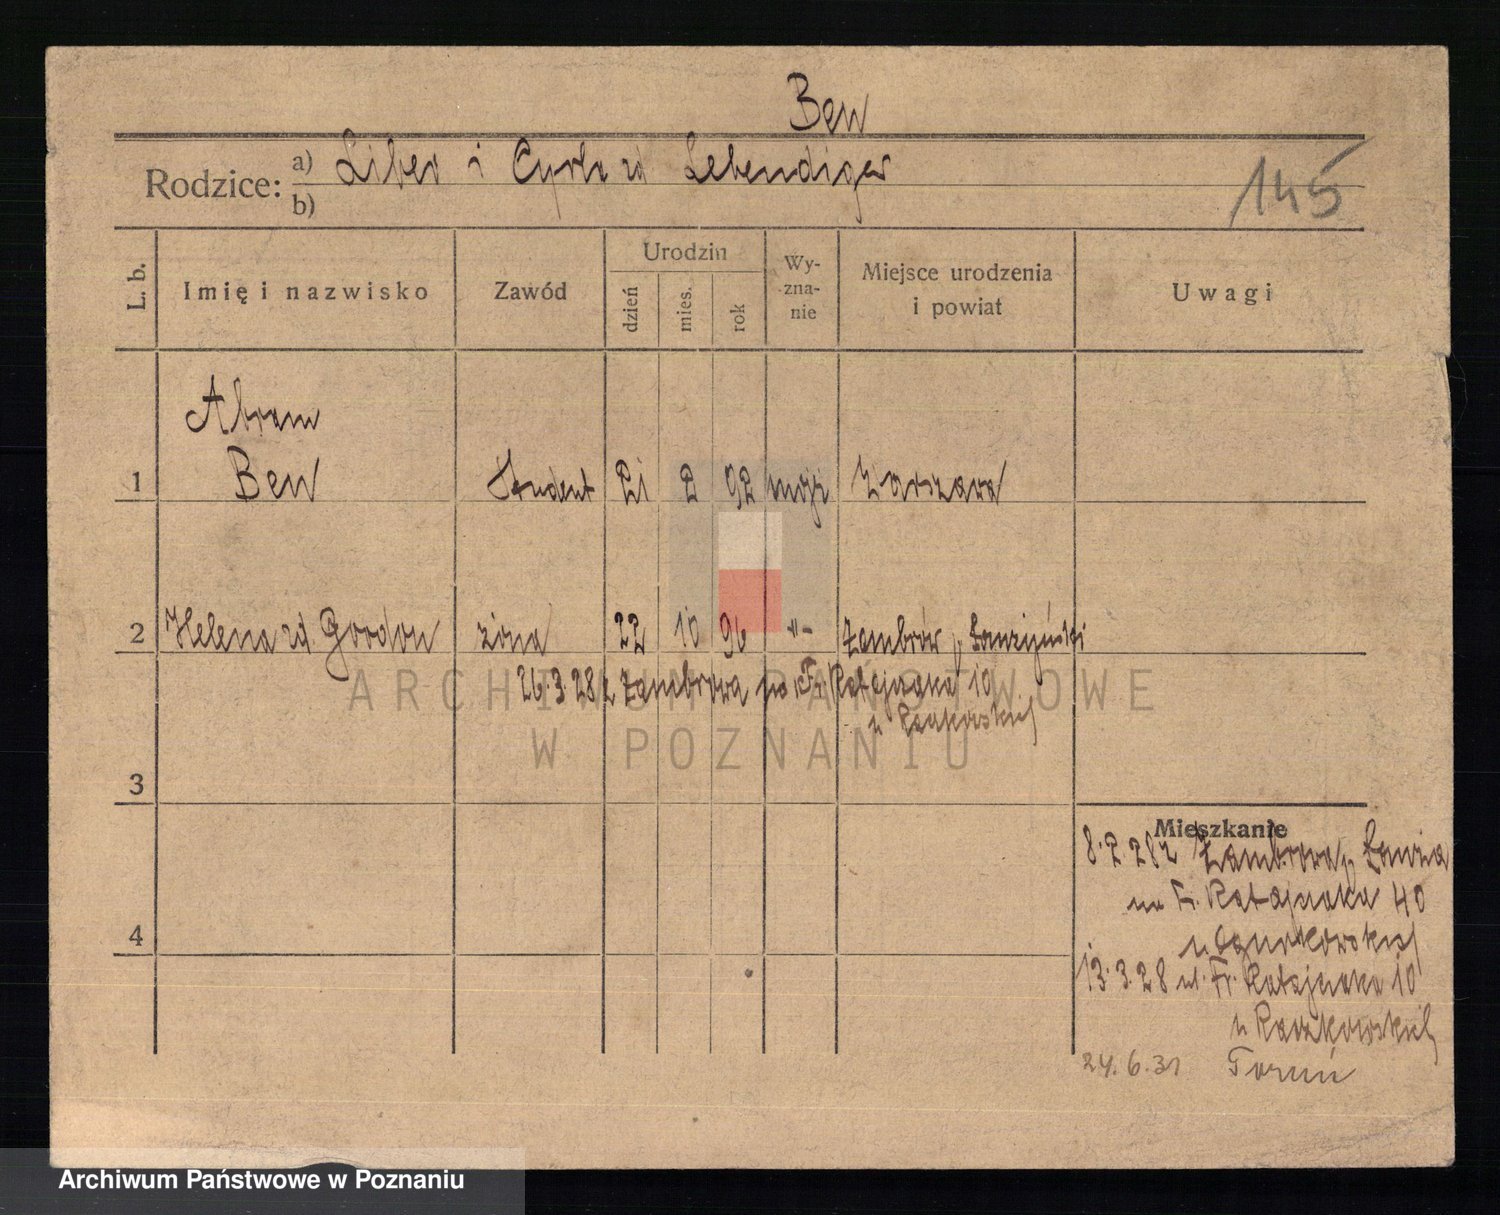 Ben
Rodzice: a) Liber i Cyrla zd Lebendiger
b)
145
L. b. Imię i nazwisko Zawód Urodzin dzień mies. rok Wy-zna-nie Miejsce urodzenia i powiat Uwagi
Abram
1 Ben Student 21 2 92 mojż Warszawa
2 Helena zd Gordon żona 22 10 96 -"- Zambrów, p. Łomżyński
26.3.28 z Zambrowa na Fr. Ratajczaka 10
u Raczkowskiej
ARCHIWUM PAŃSTWOWE
W POZNANIU
3
4
Mieszkanie
8.2.28 z Zambrowa, p. Łomża
na Fr. Ratajczaka 40
13.3.28 ul. Fr. Ratajczaka 10
u Raczkowskiej
24.6.31 Toruń
Archiwum Państwowe w Poznaniu